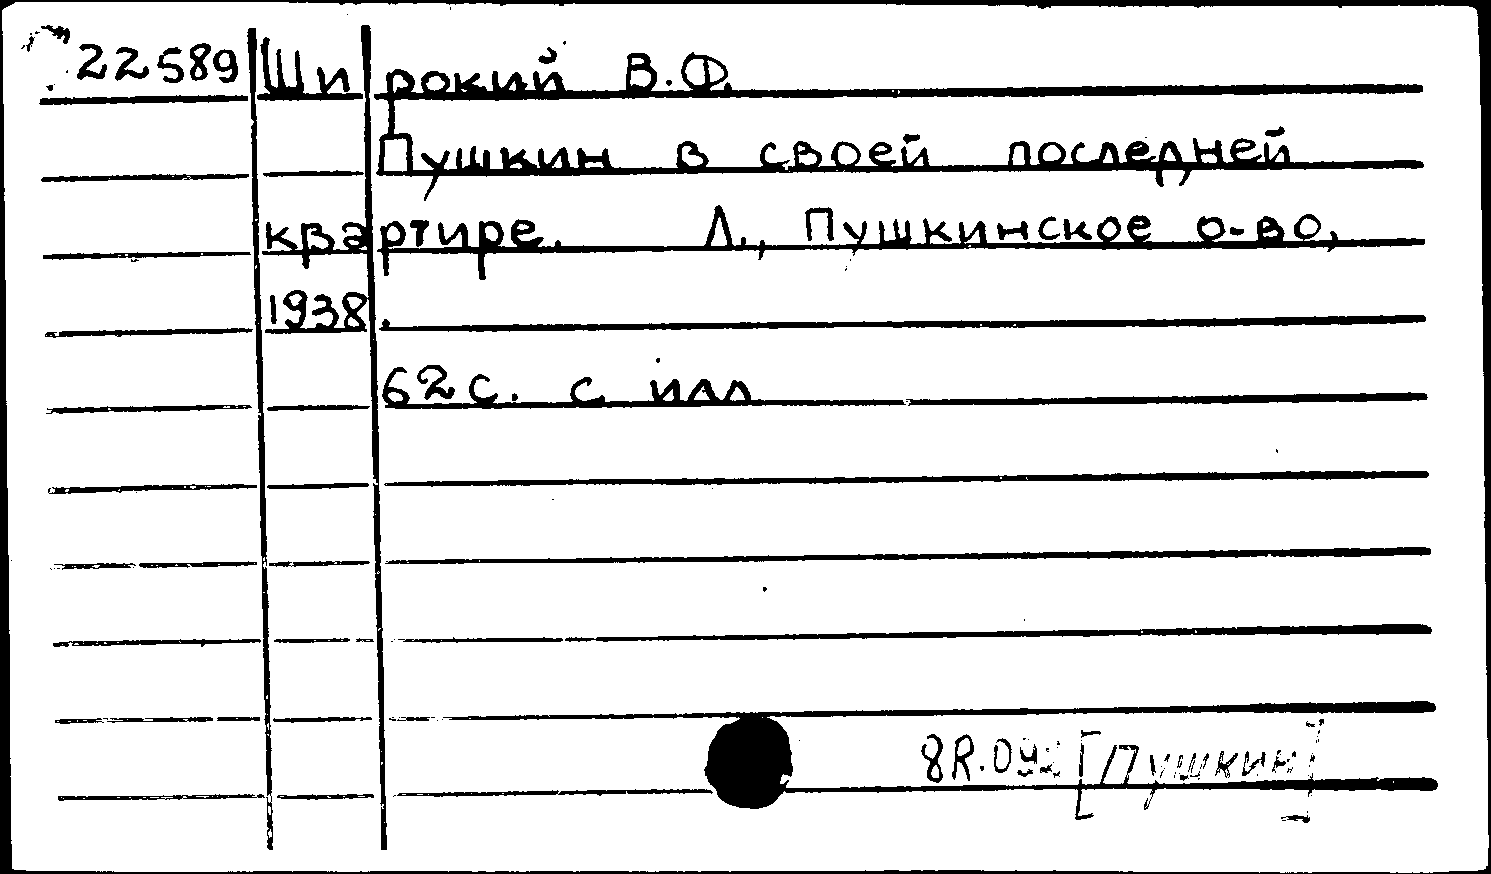 22589 Широкий В.Ф.
Пушкин в своей последней
квартире. Л., Пушкинское о-во,
1938.
62 с. с илл
8R.092 [Пушкин]